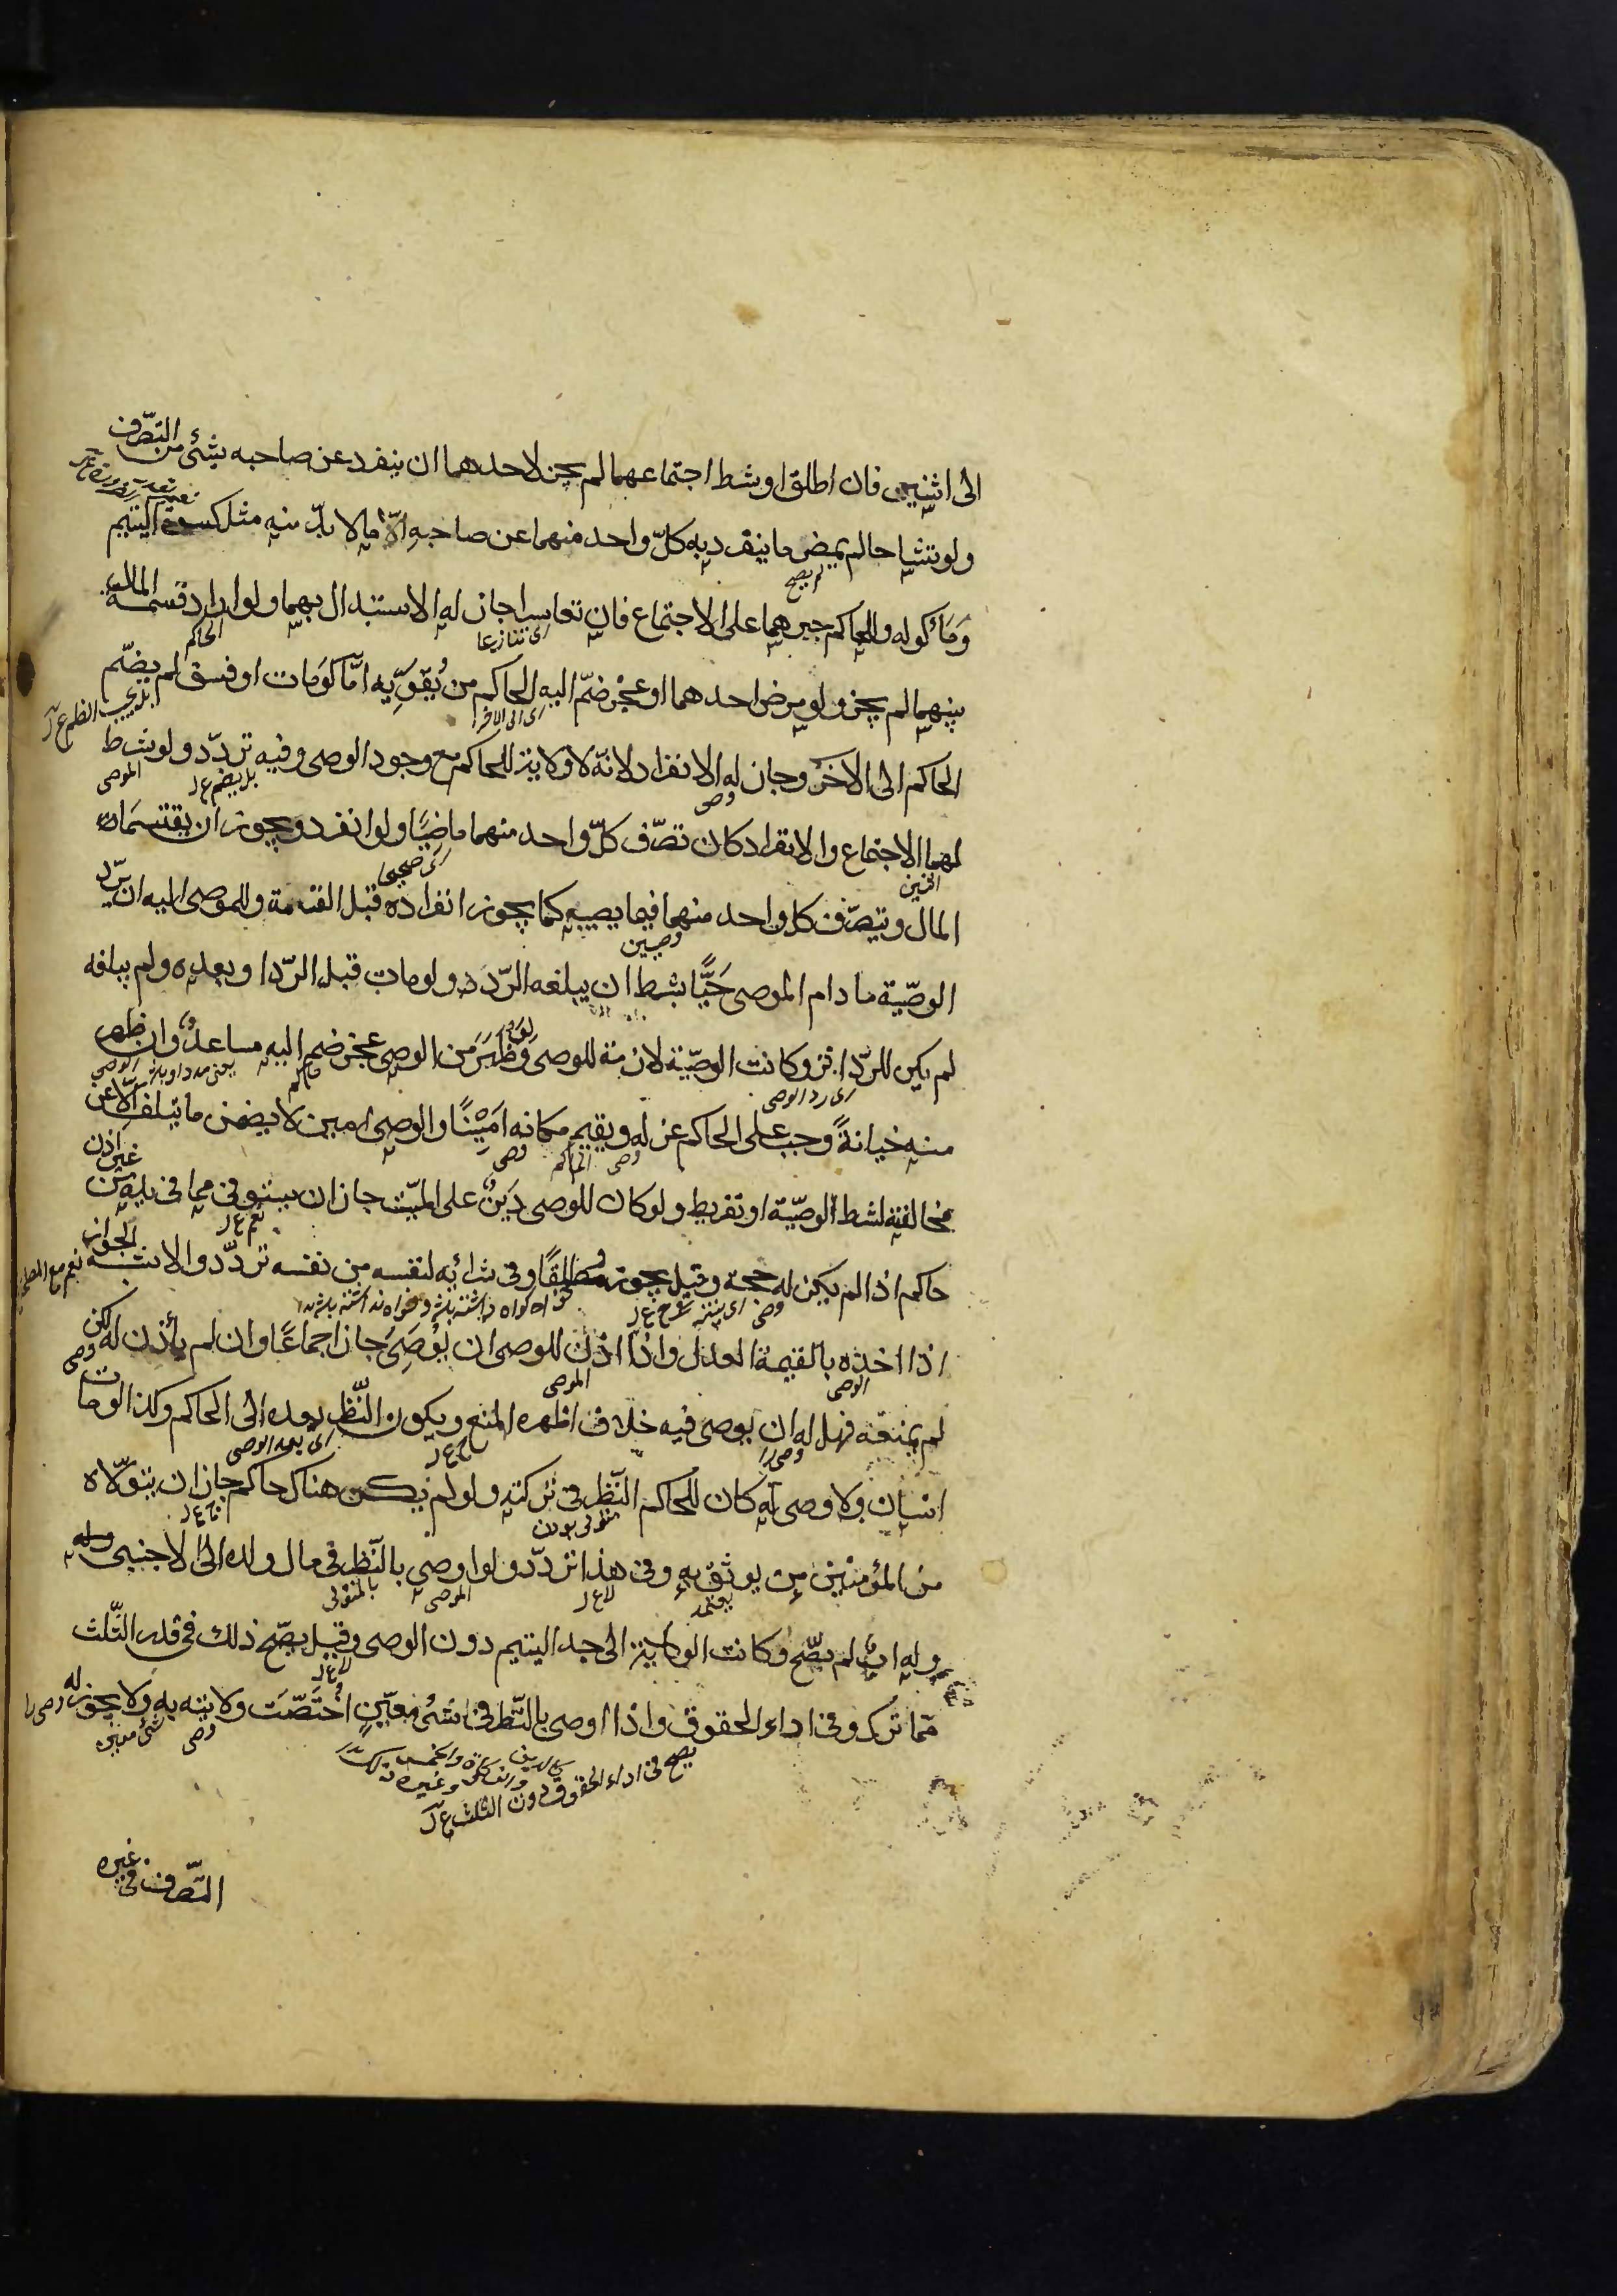 الى اثنين فان اطلق او شرط اجتماعهما لم يجز لاحدهما ان ينفرد عن صاحبه بشئ من التصّرف
ولو تشاحا لم يمض ما ينفرد به كلّ واحد منهما عن صاحبه الّا ما لا بدّ منه مثل كسوة اليتيم
لم يصح
وَمَأكوله وللحاكم جبرهما على الاجتماع فان تعاسرا جاز له الاستبدال بهما ولو اراد قسمة المال
اى تنازعا
الحاكم
بينهما لم يجز ولو مرض احدهما او عجز ضمّ اليه الحاكم من يُقوِّيه امّا لو مات او فسق لم يضمّ
اى الى الاخر
الحاكم الى الاخر وجاز له الانفراد لانّه لا ولاية للحاكم مع وجود الوصى وفيه تردّد ولو شرط
وصى
بل يضم ع ل
الموصى
لهما الاجتماع والانفراد كان تصرّف كلّ واحد منهما ماضيًا ولو انفرد ويجوز ان يقتسماه
اثنين
اى صحيحا
المال ويتصّرف كل واحد منهما فيما يصيبه كما يجوز انفراده قبل القسمة وللموصى اليه ان يرّد
وصيين
الوصيّة ما دام الموصى حَيًّا بشرط ان يبلغه الرّد ولو مات قبل الرّد او بعده ولم يبلغه
لم يكن للرّد اثر وكانت الوصيّة لازمة للموصى وَلو ظَهَرَ من الوصى عجز ضم اليه مساعدٌ وان ظهر
اى رد الوصى
حاكم
الوصى
منه خيانةً وجب على الحاكم عزله ويقيم مكانه اَمِيْنًا والوصى امين لا يضمن ما يتلف الّا عن
وصى
الحاكم
وصى
مخالفته لشرط الوصيّة او تفريط ولو كان للوصى دَينٌ على الميّت جاز ان يستوفى مما فى يده من غير اذن
نعم ع ل
حاكم اذا لم يكن له حجة وقيل يجوز مطلقًا وفى شرائه لنفسه من نفسه تردّد والاشبه الجواز
نعم مع المصلحة
وصى
خواه كواه داشته باشد وخواه نداشته باشد
اذا اخذه بالقيمة العدل واذا اذن للوصى ان يُوصِىَ جاز اجماعًا وان لم يأذن له لكن
الوصى
الموصى
وصى
لم يمنعه فهل له ان يوصى فيه خلاف اظهره المنع ويكون النّظر بعده الى الحاكم وكذا لو مات
اى بعد الوصى
انسان ولا وصى له كان للحاكم النّظر فى تركته ولو لم يكن هناك حاكم جاز ان يتولّاه
من المؤمنين من يوثق به وفى هذا تردّد ولو اوصى بالنّظر فى مال ولده الى اجنبى وله
يعتمد
لا ع ل
الموصى
بالمتولى
وله اب لم يصّح وكانت الولاية الى جد اليتيم دون الوصى وقيل يصّح ذلك فى قدر الثّلث
لا ع ل
ممّا ترك وفى اداء الحقوق واذا اوصى بالنّظر فى شئ معيّن اختصّت ولايته به ولا يجوز له
وصى
شئ معين
يصح فى اداء الحقوق دون الثلث ع ل
التصّرف فى غيره